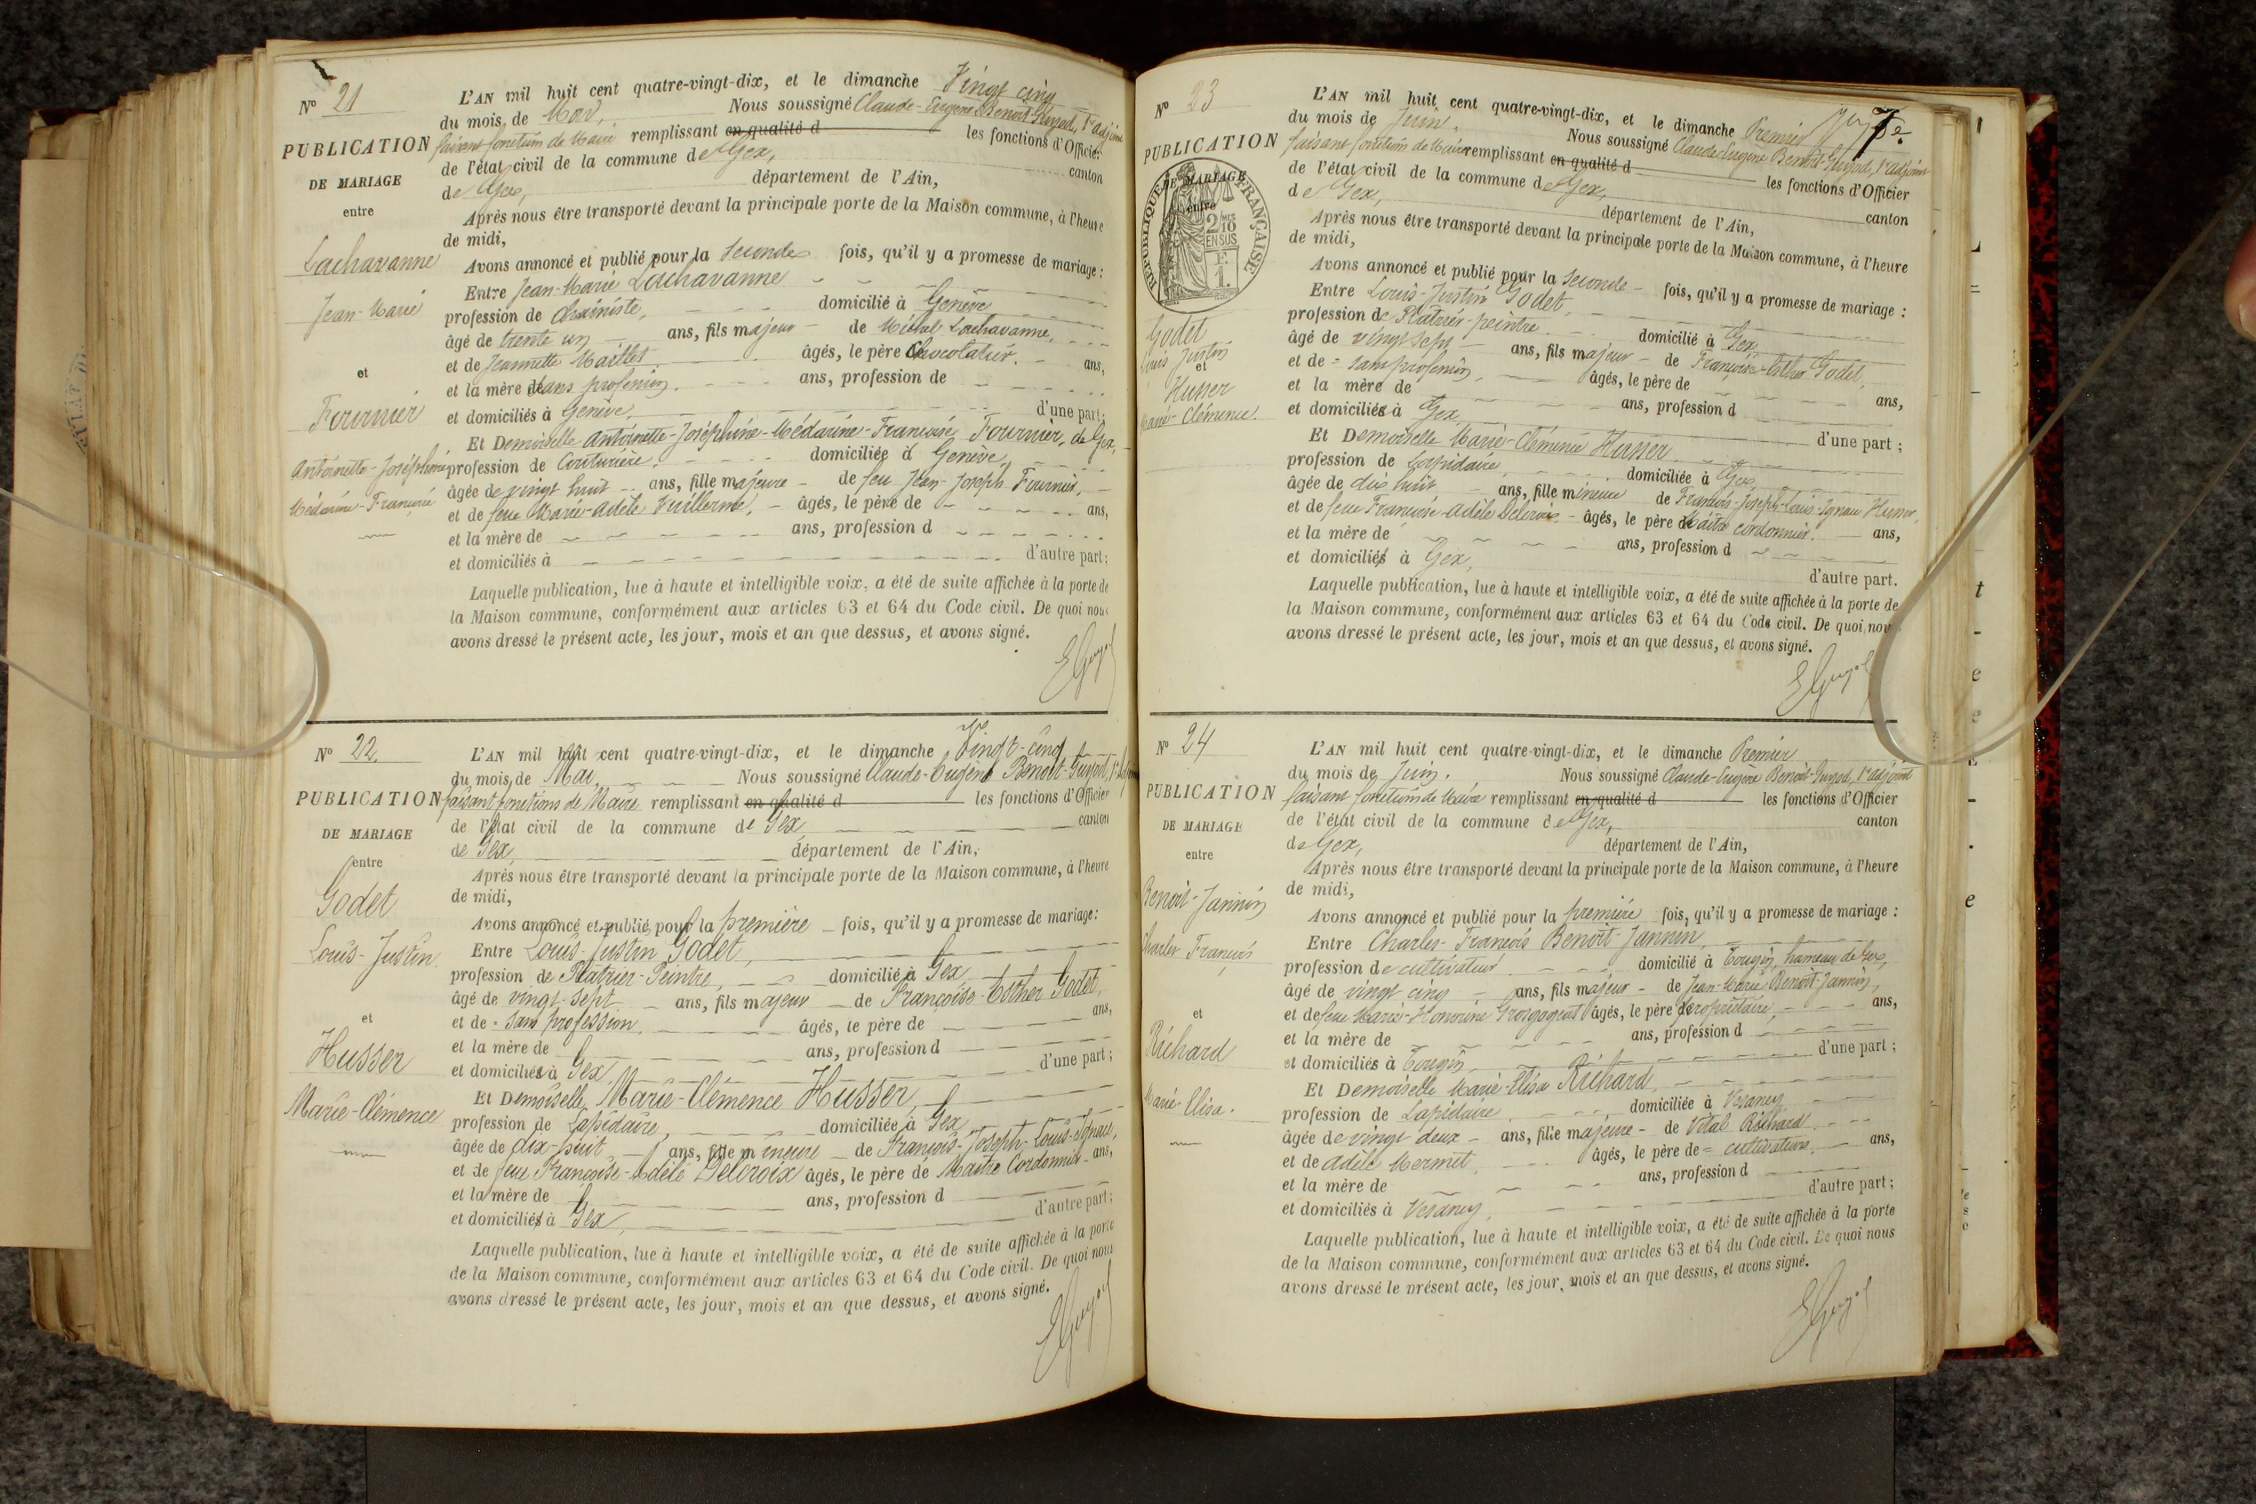 Nº 21
PUBLICATION
DE MARIAGE
entre
Lachavanne
Jean-Marie
et
Fournier
Antoinette-Joséphine
Médarine-Françoise
L'AN mil huit cent quatre-vingt-dix, et le dimanche Vingt cinq
du mois de Mai, Nous soussigné Claude-Eugène Benoit-Guyod, 1er adjoint
faisant fonctions de Maire remplissant en qualité d les fonctions d'Officier
de l'état civil de la commune de Gex, canton
de Gex, département de l'Ain,
Après nous être transporté devant la principale porte de la Maison commune, à l'heure
de midi,
Avons annoncé et publié pour la Seconde fois, qu'il y a promesse de mariage :
Entre Jean-Marie Lachavanne
profession de domicilié à Genève
âgé de trente un ans, fils majeur de Lachavanne,
et de Jeannette Maillet âgés, le père Chocolatier. ans,
et la mère sans profession. ans, profession de
et domiciliés à Genève d'une part;
Et Demoiselle Antoinette-Joséphine-Médarine-Françoise Fournier, de Gex,
profession de Couturière, domiciliée à Genève,
âgée de vingt huit ans, fille majeure de feu Jean-Joseph Fournier,
et de feue Marie-Adèle Vuillerme, âgés, le père de ans,
et la mère de ans, profession d
et domiciliés à d'autre part;
Laquelle publication, lue à haute et intelligible voix, a été de suite affichée à la porte de
la Maison commune, conformément aux articles 63 et 64 du Code civil. De quoi nous
avons dressé le présent acte, les jour, mois et an que dessus, et avons signé.
EGuyod
Nº 22
PUBLICATION
DE MARIAGE
entre
Godet
Louis-Justin
et
Husser
Marie-Clémence
L'AN mil huit cent quatre-vingt-dix, et le dimanche Vingt-cinq
du mois de Mai, Nous soussigné Claude-Eugène Benoit-Guyod, 1er adjoint
faisant fonctions de Maire remplissant en qualité d les fonctions d'Officier
de l'état civil de la commune de Gex, canton
de Gex, département de l'Ain,
Après nous être transporté devant la principale porte de la Maison commune, à l'heure
de midi,
Avons annoncé et publié pour la première fois, qu'il y a promesse de mariage:
Entre Louis-Justin Godet,
profession de Plâtrier-Peintre, domicilié à Gex
âgé de vingt-sept ans, fils majeur de Françoise-Esther Godet,
et de sans profession, âgés, le père de ans,
et la mère de ans, profession d
et domiciliés à Gex d'une part;
Et Demoiselle Marie-Clémence Husser,
profession de Lapidaire, domiciliée à Gex
âgée de dix-huit ans, fille mineure de François-Joseph-Louis-Ignace,
et de feue Françoise-Adèle Delcroix âgés, le père de Maître Cordonnier ans,
et la mère de ans, profession d
et domiciliés à Gex, d'autre part;
Laquelle publication, lue à haute et intelligible voix, a été de suite affichée à la porte
de la Maison commune, conformément aux articles 63 et 64 du Code civil. De quoi nous
avons dressé le présent acte, les jour, mois et an que dessus, et avons signé.
EGuyod
7e
Nº 23
PUBLICATION
DE MARIAGE
entre
RÉPUBLIQUE FRANÇAISE
2/10
EN SUS
F.
1.
Godet
Louis Justin
et
Husser
Marie-Clémence.
L'AN mil huit cent quatre-vingt-dix, et le dimanche Premier
du mois de Juin. Nous soussigné Claude-Eugène Benoit-Guyod, 1er adjoint
faisant fonctions de Maire remplissant en qualité d les fonctions d'Officier
de l'état civil de la commune de Gex, canton
de Gex, département de l'Ain,
Après nous être transporté devant la principale porte de la Maison commune, à l'heure
de midi,
Avons annoncé et publié pour la Seconde fois, qu'il y a promesse de mariage :
Entre Louis-Justin Godet,
profession de Plâtrier-peintre domicilié à Gex
âgé de vingt sept ans, fils majeur de Françoise-Esther Godet,
et de sans profession, âgés, le père de ans,
et la mère de ans, profession d
et domiciliés à Gex d'une part ;
Et Demoiselle Marie-Clémence Husser
profession de Lapidaire domiciliée à Gex
âgée de dix huit ans, fille mineure de François-Joseph-Louis-Ignace Husser,
et de feue Françoise-Adèle Delcroix âgés, le père Maître cordonnier. ans,
et la mère de ans, profession d
et domiciliés à Gex, d'autre part.
Laquelle publication, lue à haute et intelligible voix, a été de suite affichée à la porte de
la Maison commune, conformément aux articles 63 et 64 du Code civil. De quoi nous
avons dressé le présent acte, les jour, mois et an que dessus, et avons signé.
EGuyod
Nº 24
PUBLICATION
DE MARIAGE
entre
Benoit-Jannin
Charles François
et
Richard
Marie Elisa.
L'AN mil huit cent quatre-vingt-dix, et le dimanche Premier
du mois de Juin. Nous soussigné Claude-Eugène Benoit-Guyod, 1er adjoint
faisant fonctions de Maire remplissant en qualité d les fonctions d'Officier
de l'état civil de la commune de Gex, canton
de Gex, département de l'Ain,
Après nous être transporté devant la principale porte de la Maison commune, à l'heure
de midi,
Avons annoncé et publié pour la première fois, qu'il y a promesse de mariage :
Entre Charles-François Benoit-Jannin,
profession de cultivateur domicilié à Tougin, hameau de Gex,
âgé de vingt cinq ans, fils majeur de Jean-Marie Benoit-Jannin,
et de feue Marie-Honorine Grosgogeat âgés, le père propriétaire, ans,
et la mère de ans, profession d
et domiciliés à Tougin d'une part ;
Et Demoiselle Marie-Elisa Richard
profession de Lapidaire domiciliée à Vesancy
âgée de vingt deux ans, fille majeure de Vital Richard
et de Adèle Mermet âgés, le père de cultivateurs ans,
et la mère de ans, profession d
et domiciliés à Vesancy, d'autre part ;
Laquelle publication, lue à haute et intelligible voix, a été de suite affichée à la porte
de la Maison commune, conformément aux articles 63 et 64 du Code civil. De quoi nous
avons dressé le présent acte, les jour, mois et an que dessus, et avons signé.
EGuyod